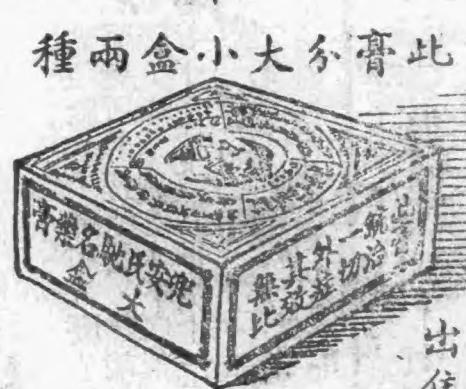 此膏分大小盒兩種
兜安氏馳名藥膏
大盒
統治
一切
外症
其效
無比
出